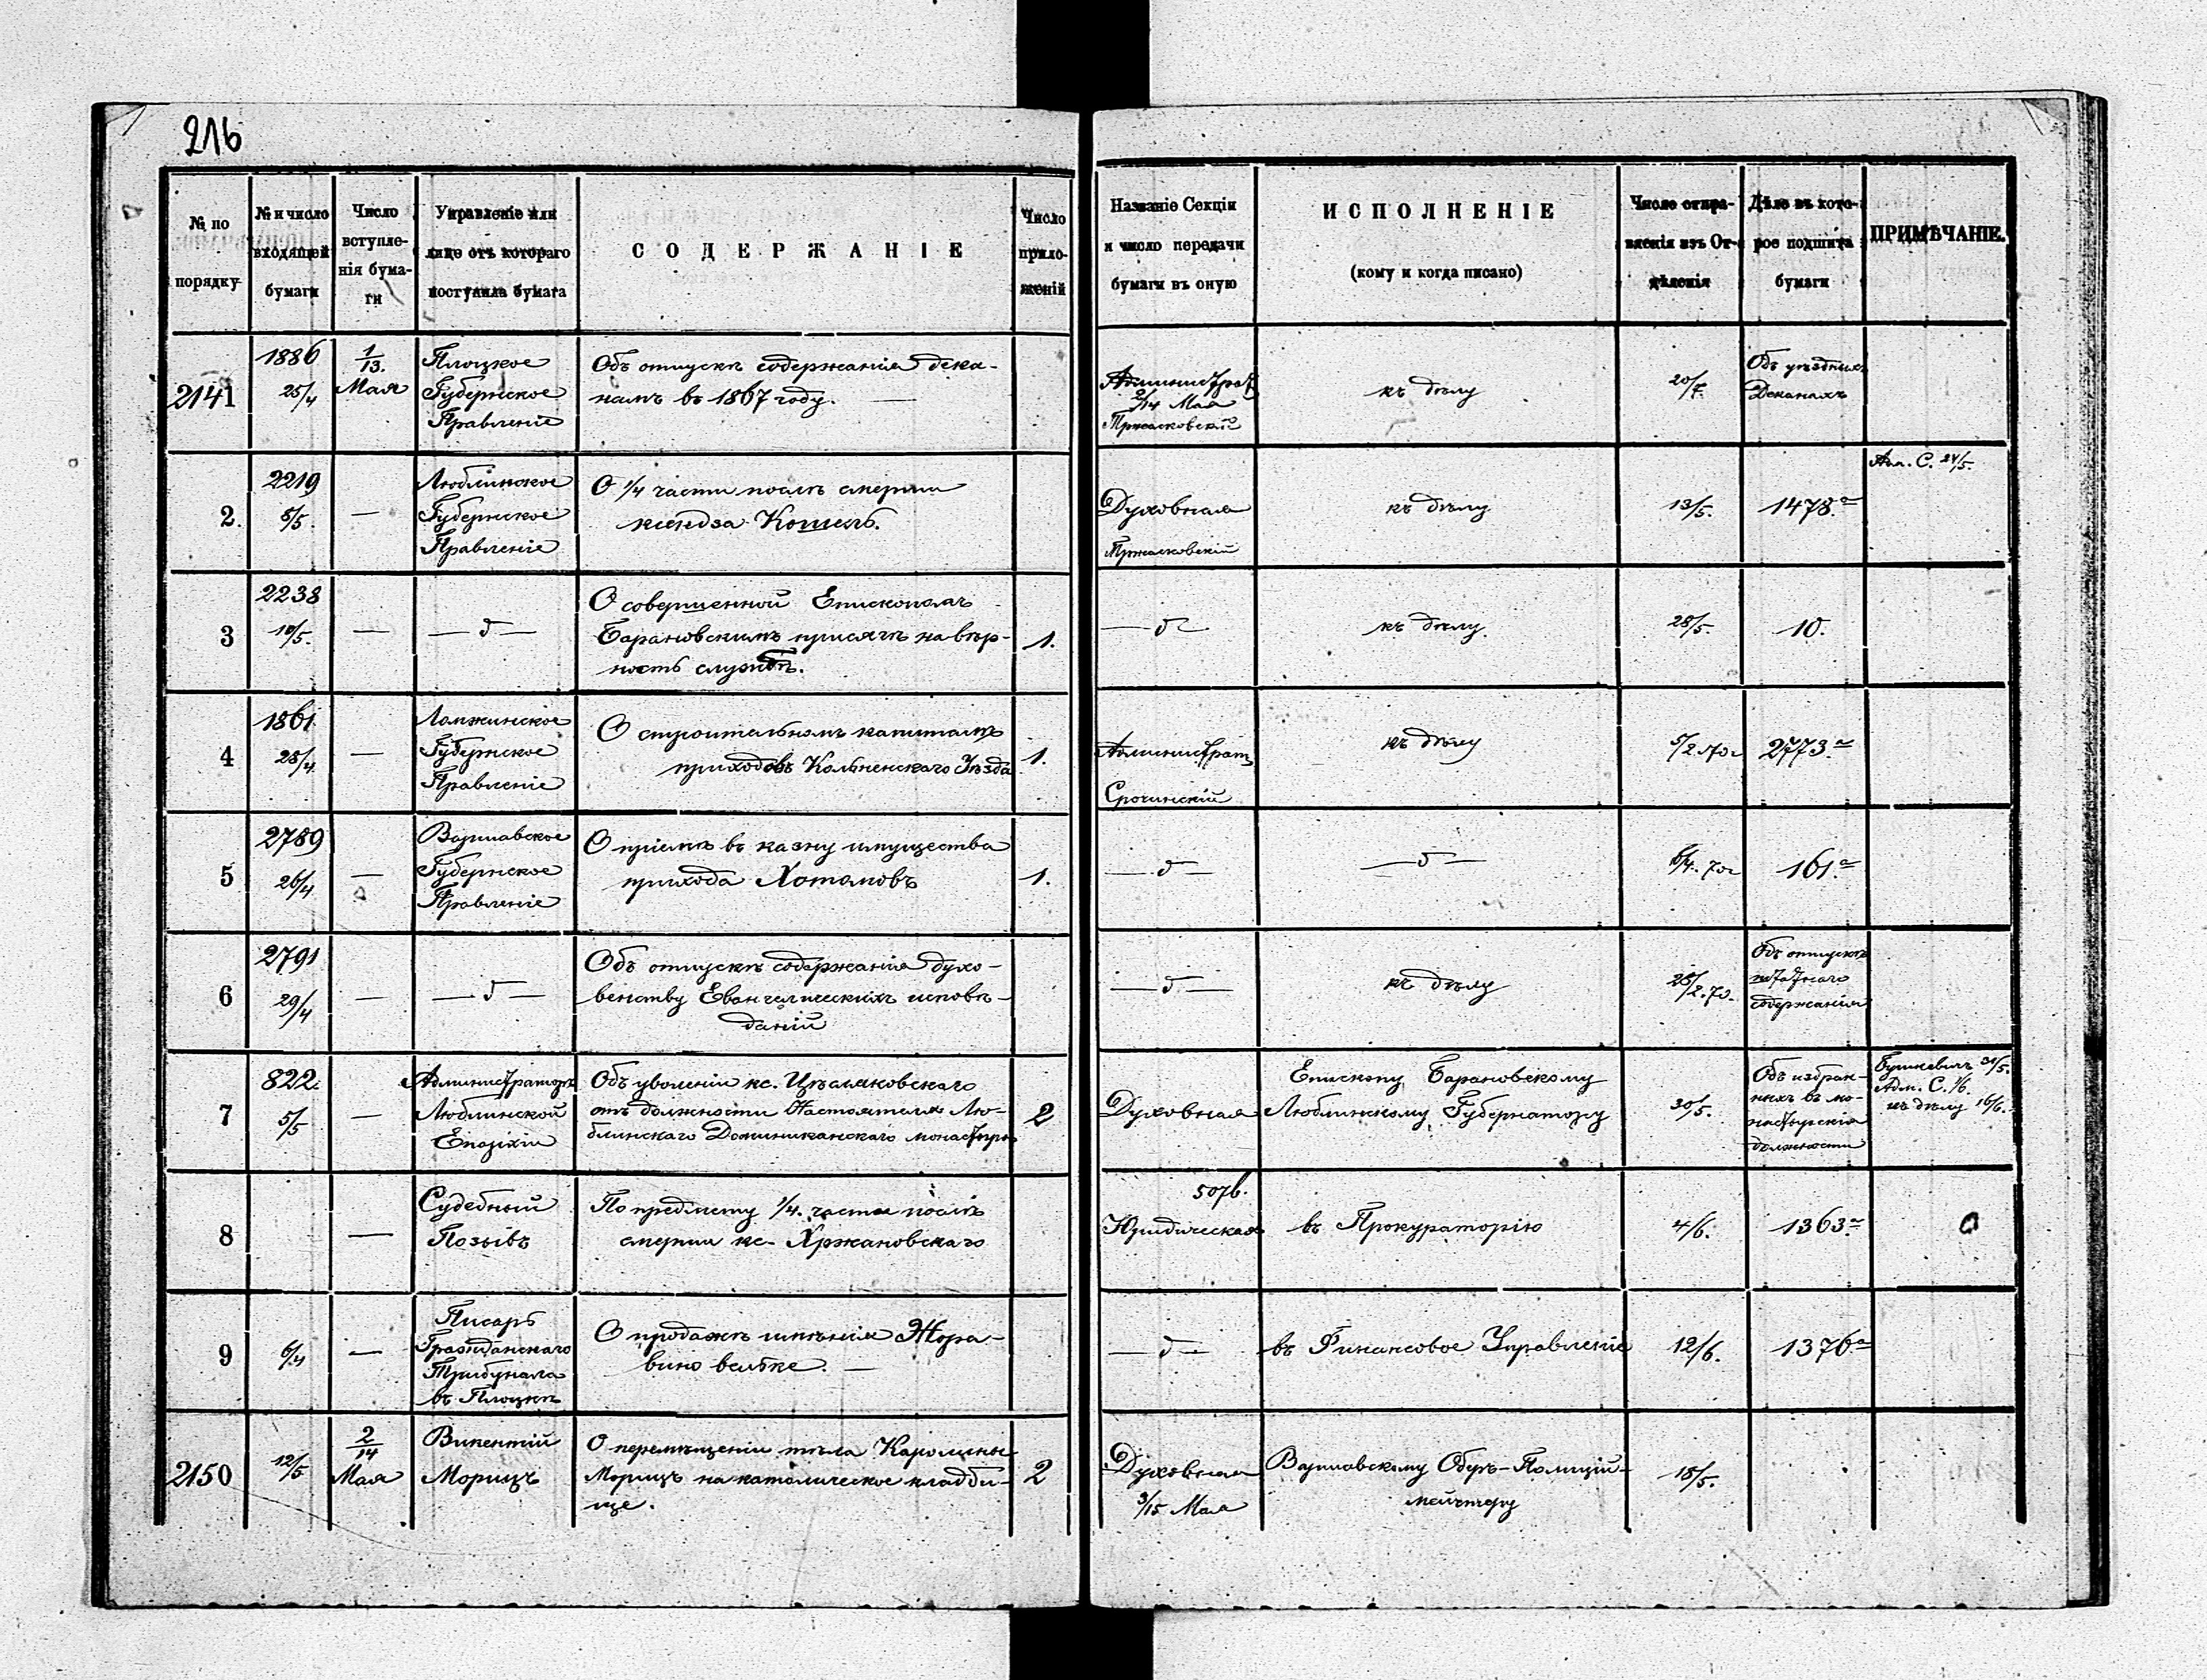 216
№ по порядку
№ и число входящей бумаги
Число вступле-нія бума-ги
Управленіе или лице отъ котораго поступила бумага
СОДЕРЖАНІЕ
Число прило-женій
Названіе Секціи и число передачи бумаги въ оную
ИСПОЛНЕНІЕ
(кому и когда писано)
Число отпра-вленія изъ От-дѣленія
Дѣло въ кото-рое подшита бумаги
ПРИМѢЧАНІЕ.
2141
1886
25/4
1/13.
Мая
Плоцкое
Губернское
Правленіе
Объ отпускѣ содержанія дека-
намъ въ 1867 году. —
Администрат
2/14 Мая
къ дѣлу
20/7.
Объ уѣздныхъ
Деканахъ
2.
2219
8/5.
—
Люблинское
Губернское
Правленіе
О 1/4 части послѣ смерти
ксендза Кошель.
Духовная
къ дѣлу
13/5.
1478.а
Адм. С. 24/5.
3
2238
10/5.
—
— д —
О совершенной Епископомъ
Барановскимъ присягѣ на вѣр-
ность службѣ.
1.
— д —
къ дѣлу
28/5.
10.
4
1861
28/4
—
Ломжинское
Губернское
Правленіе
О строительномъ капиталѣ
приходовъ Кольненскаго Уѣзда
1.
Администрат
Срочинскій
къ дѣлу
5/2 70 г
2773.а
5
2789
26/4
—
Варшавское
Губернское
Правленіе
О пріемѣ въ казну имущества
прихода Хотомовъ
1.
— д —
— д —
6/4. 70 г
161.а
6
2791
29/4
—
— д —
Объ отпускѣ содержанія духо-
венству Евангелическихъ исповѣ-
даній
— д —
къ дѣлу
25/2. 70.
Объ отпускѣ
штатнаго
содержанія
7
822.
5/5
—
Администраторъ
Люблинской
Епархіи
Объ уволеніи кс.
отъ должности Настоятеля Лю-
блинскаго Доминиканскаго монастыря
2
Духовная
Епископу Барановскому
Люблинскому Губернатору
30/5.
Объ избран-
ныхъ въ мо-
настырскія
должности
31/5.
Адм. С. 1/6.
къ дѣлу 16/6.
8
—
Судебный
Позывъ
По предмету 1/4. части послѣ
смерти кс. Хржановскаго
507б.
Юридическая
въ Прокураторію
4/6.
1363.а
9
6/4
—
Писарь
Гражданскаго
Трибунала
въ Плоцкѣ
О продажѣ имѣнія Жора-
вино вельке. —
— д —
въ Финансовое Управленіе
12/6.
1376.а
2150
12/5
2/14
Мая
Викентій
Морицъ
О перемѣщеніи тѣла Каролины
Морицъ на католическое кладби-
ще.
2
Духовная
3/15 Мая
Варшавскому Оберъ-Полицій-
мейстеру
18/5.